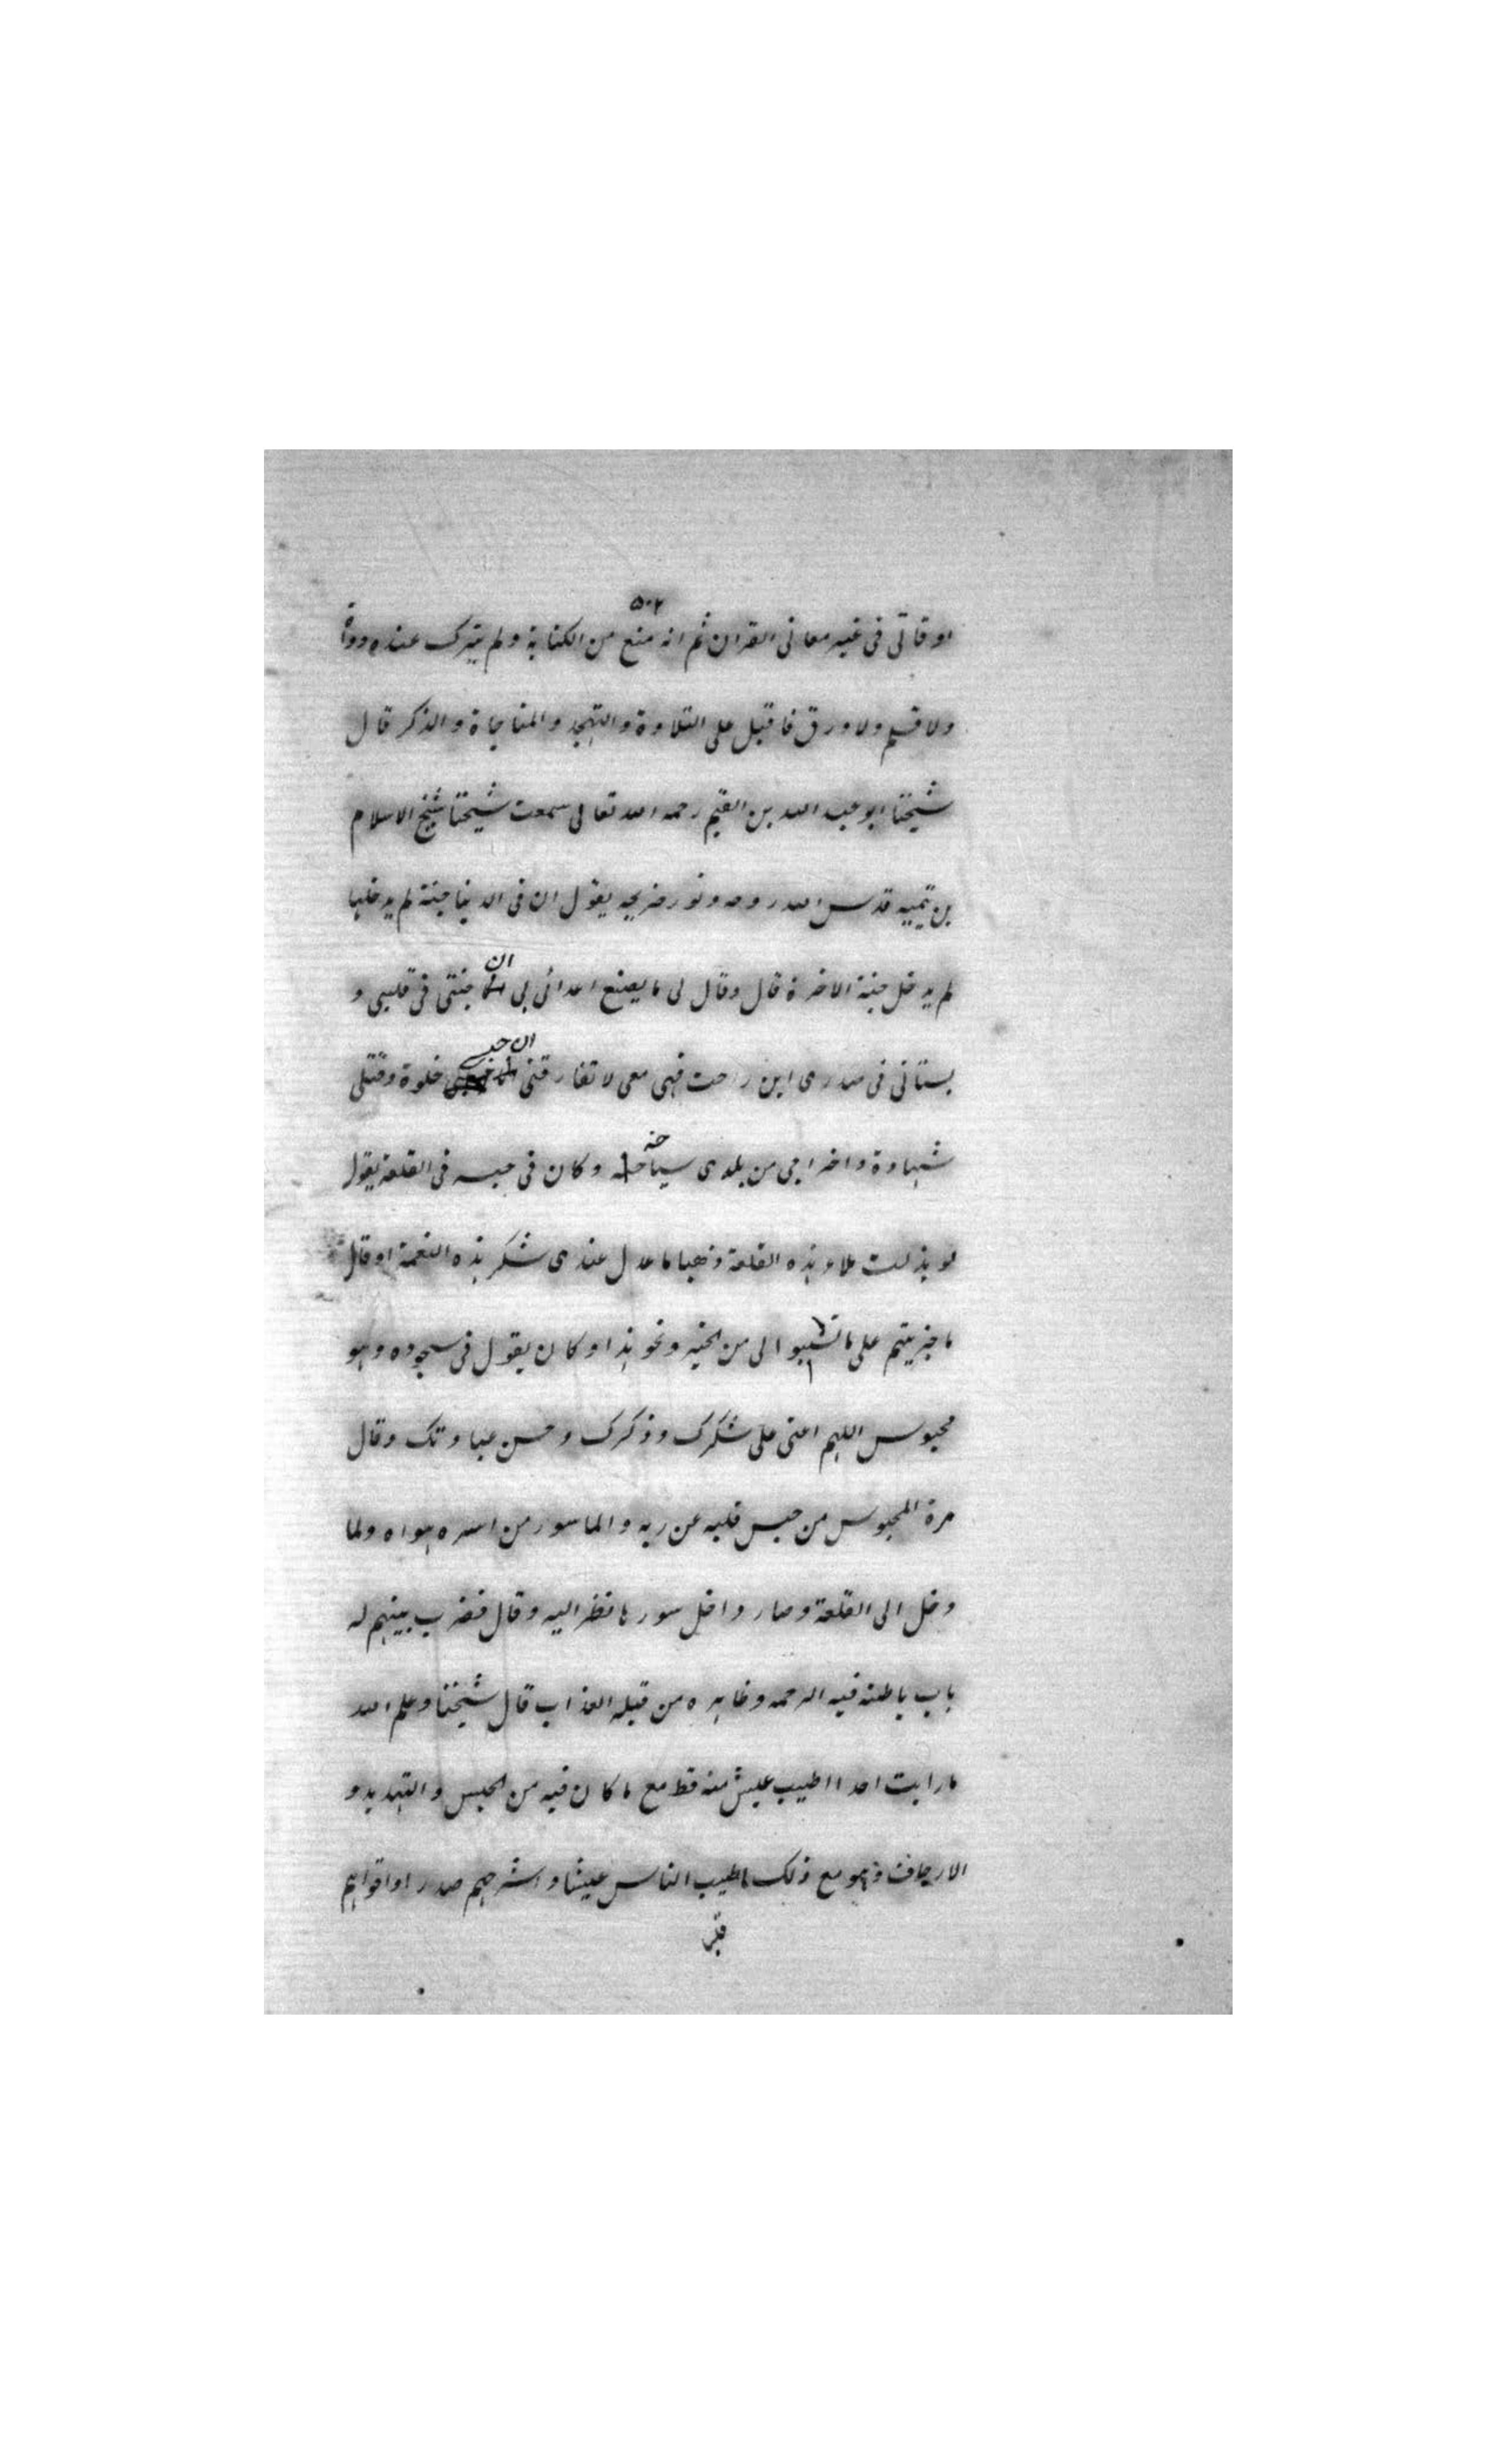 ٥٠٢
اوقاتى فى غير معانى القران ثم انه منع من الكتابة ولم يترك عنده دواة
ولا قلم ولا ورق فاقبل على التلاوة والتهجد والمناجاة والذكر قال
شيخنا ابو عبد الله بن القيم رحمه الله تعالى سمعت شيخنا شيخ الاسلام
بن تيميه قدس الله روحه ونور ضريحه يقول ان فى الدنيا جنة لم يدخلها
لم يدخل جنة الاخرة قال وقال لى ما يصنع اعدائى بى ان جنتى فى قلبى و
بستانى فى صدرى اين رحت فهى معى لا تفارقنى ان حبسى خلوة وقتلى
شهادة واخراجى من بلدى سياحة وكان فى حبسه فى القلعة يقول
لو بذلت ملاء هذه القلعة ذهبا ما عدل عندى شكر هذه النعمة او قال
ما جزيتم على ما تسببوا الى من الخير ونحو هذا وكان يقول فى سجوده وهو
محبوس اللهم اعنى على شكرك وذكرك وحسن عبادتك وقال
مرة المحبوس من حبس قلبه عن ربه والماسور من اسره هواه ولما
دخل الى القلعة وصار داخل سورها نظر اليه وقال فضرب بينهم له
باب باطنه فيه الرحمه وظاهره من قبله العذاب قال شيخنا وعلم الله
ما رايت احدا اطيب عيش منه قط مع ما كان فيه من الحبس والتهديد و
الارجاف وهو مع ذلك اطيب الناس عيشا واشرحهم صدرا واقواهم